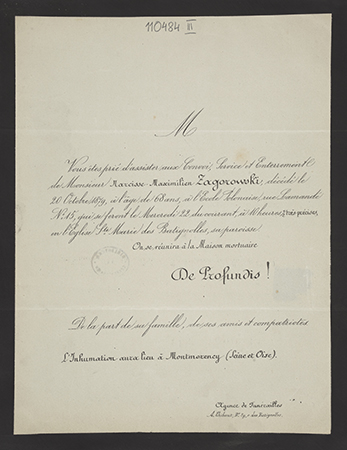 110484 III
M
Vous êtes prié d'assister aux Convoi, Service et Enterrement
de Monsieur Narcisse-Maximilien Zagorowski, décédé le
20 Octobre 1879, à l'âge de 68 ans, à l'Ecole Polonaise, rue Lamandé
No. 15, qui se feront le Mercredi 22 du courant, à 10 heures très précises,
en l'Eglise Ste Marie des Batignolles, sa paroisse.
On se réunira à la Maison mortuaire
De Profundis !
De la part de sa famille, de ses amis et compatriotes
L'Inhumation aura lieu à Montmorency (Seine et Oise).
Agence de Funérailles
des Batignolles